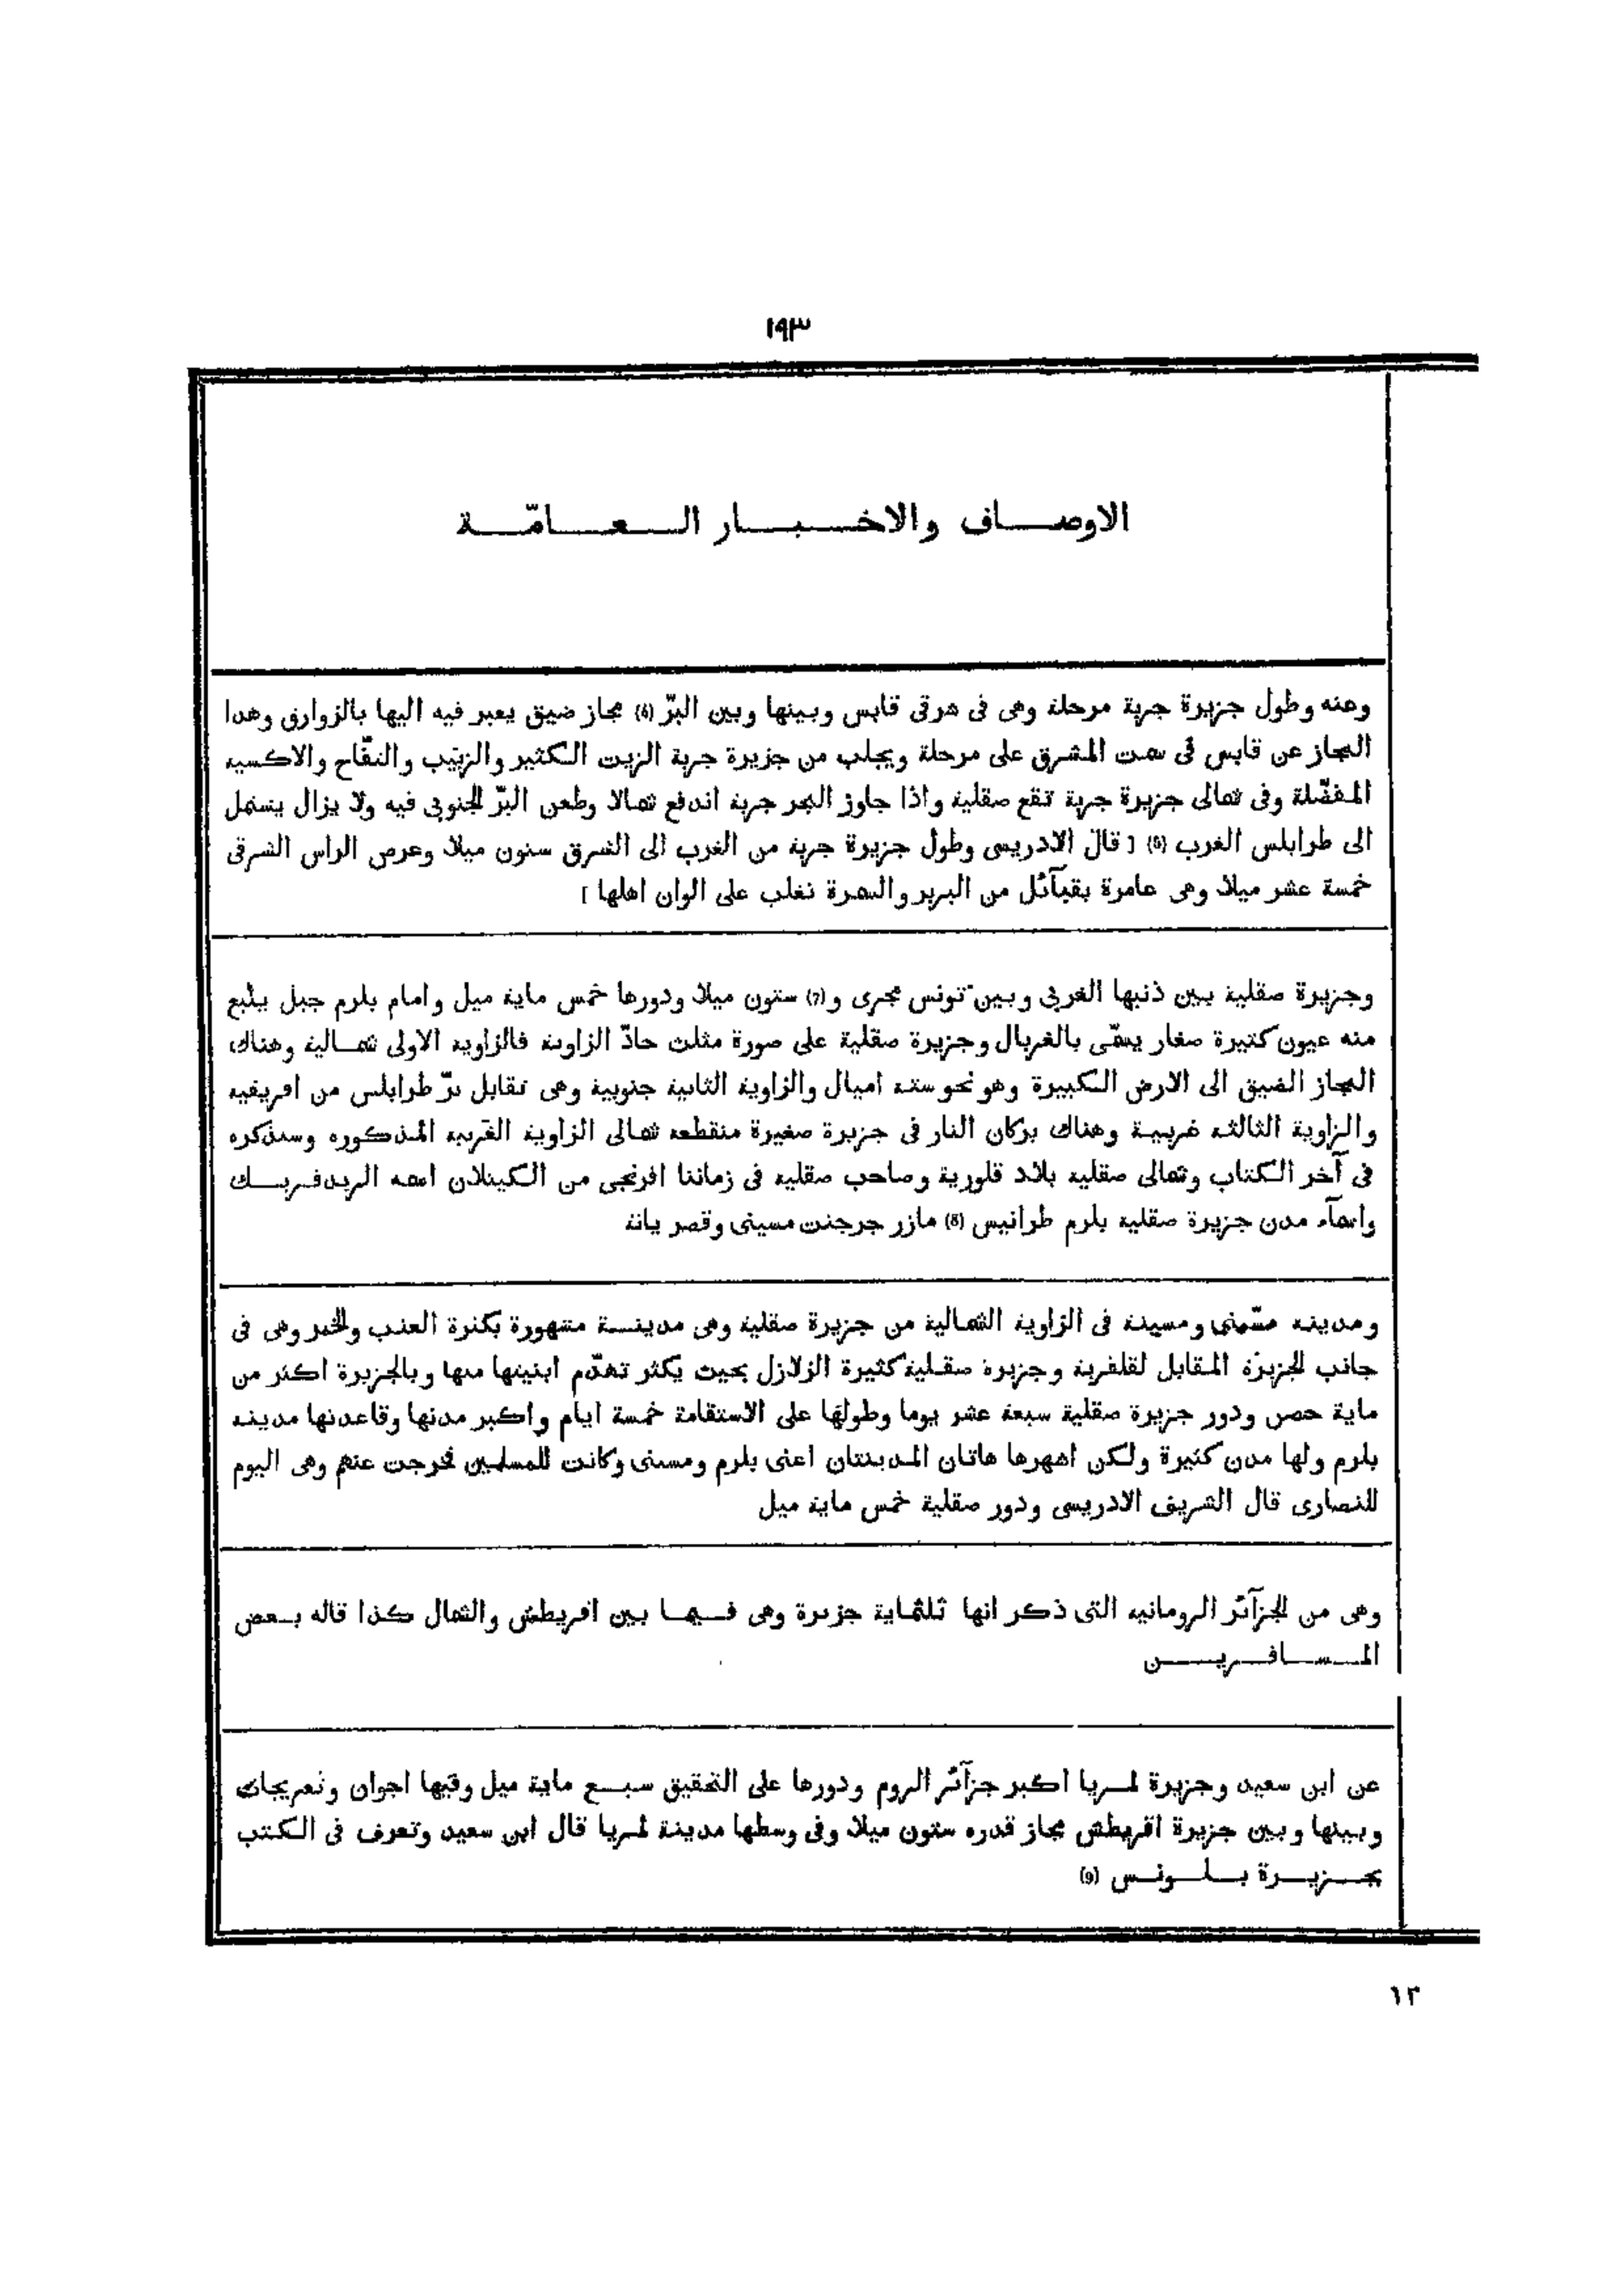 ١٩٣
الاوصاف والاخبار العامّة
وعنه وطول جزيرة جربة مرحلة وهى فى شرقى قابس وبينها وبين البرّ (4) مجاز ضيق يعبر فيه اليها بالزوارق وهذا
المجاز عن قابس فى سمت المشرق على مرحلة ويجلب من جزيرة جربة الزيت الكثير والزبيب والتفّاح والاكسية
المفضّلة وفى شمالى جزيرة جربة تقع صقلية واذا جاوز البحر جربة اندفع شمالا وطعن البرّ الجنوبى فيه ولا يزال يستمل
الى طرابلس الغرب (5) [ قال الادريسى وطول جزيرة جربة من الغرب الى الشرق ستون ميلا وعرض الراس الشرقى
خمسة عشر ميلا وهى عامرة بقبآئل من البربر والسمرة تغلب على الوان اهلها ]
وجزيرة صقلية بين ذنبها الغربى وبين تونس مجرى و(7) ستون ميلا ودورها خمس ماية ميل وامام بلرم جبل ينبع
منه عيون كثيرة صغار يسمّى بالغربال وجزيرة صقلية على صورة مثلث حادّ الزاوية فالزاوية الاولى شمالية وهناك
المجاز الضيق الى الارض الكبيرة وهو نحو ستة اميال والزاوية الثانية جنوبية وهى تقابل برّ طرابلس من افريقية
والزاوية الثالثة غربية وهناك بركان النار فى جزيرة صغيرة منقطعة شمالى الزاوية الغربية المذكورة وسنذكره
فى آخر الكتاب وشمالى صقلية بلاد قلورية وصاحب صقلية فى زماننا افرنجى من الكيتلان اسمه الريدفريك
واسمآء مدن جزيرة صقلية بلرم طرانيس (8) مازر جرجنت مسينى وقصر يانة
ومدينة مسّينى ومسينة فى الزاوية الشمالية من جزيرة صقلية وهى مدينة مشهورة بكثرة العنب والخمر وهى فى
جانب الجزيرة المقابل لقلفرية وجزيرة صقلية كثيرة الزلازل بحيث يكثر تهدّم ابنيتها منها وبالجزيرة اكثر من
ماية حصن ودور جزيرة صقلية سبعة عشر يوما وطولها على الاستقامة خمسة ايام واكبر مدنها وقاعدتها مدينة
بلرم ولها مدن كثيرة ولكن اشهرها هاتان المدينتان اعنى بلرم ومسينى وكانت للمسلمين فخرجت عنهم وهى اليوم
للنصارى قال الشريف الادريسى ودور صقلية خمس ماية ميل
وهى من الجزآئر الرومانية التى ذكر انها ثلثماية جزيرة وهى فيما بين اقريطش والشمال كذا قاله بعض
المسافرين
عن ابن سعيد وجزيرة لمريا اكبر جزآئر الروم ودورها على التحقيق سبع ماية ميل وفيها اجوان وتعريجات
وبينها وبين جزيرة اقريطش مجاز قدره ستون ميلا وفى وسطها مدينة لمريا قال ابن سعيد وتعرف فى الكتب
بجزيرة بلونس (9)
١٣